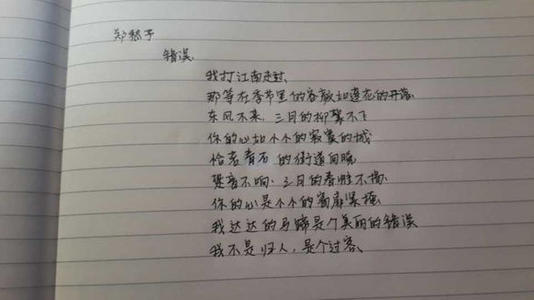 郑愁予
错误
我打江南走过
那等在季节里的容颜如莲花的开落
东风不来，三月的柳絮不飞
你的心如小小的寂寞的城
恰若青石的街道向晚
跫音不响，三月的春帷不揭
你的心是小小的窗扉紧掩
我达达的马蹄是个美丽的错误
我不是归人，是个过客